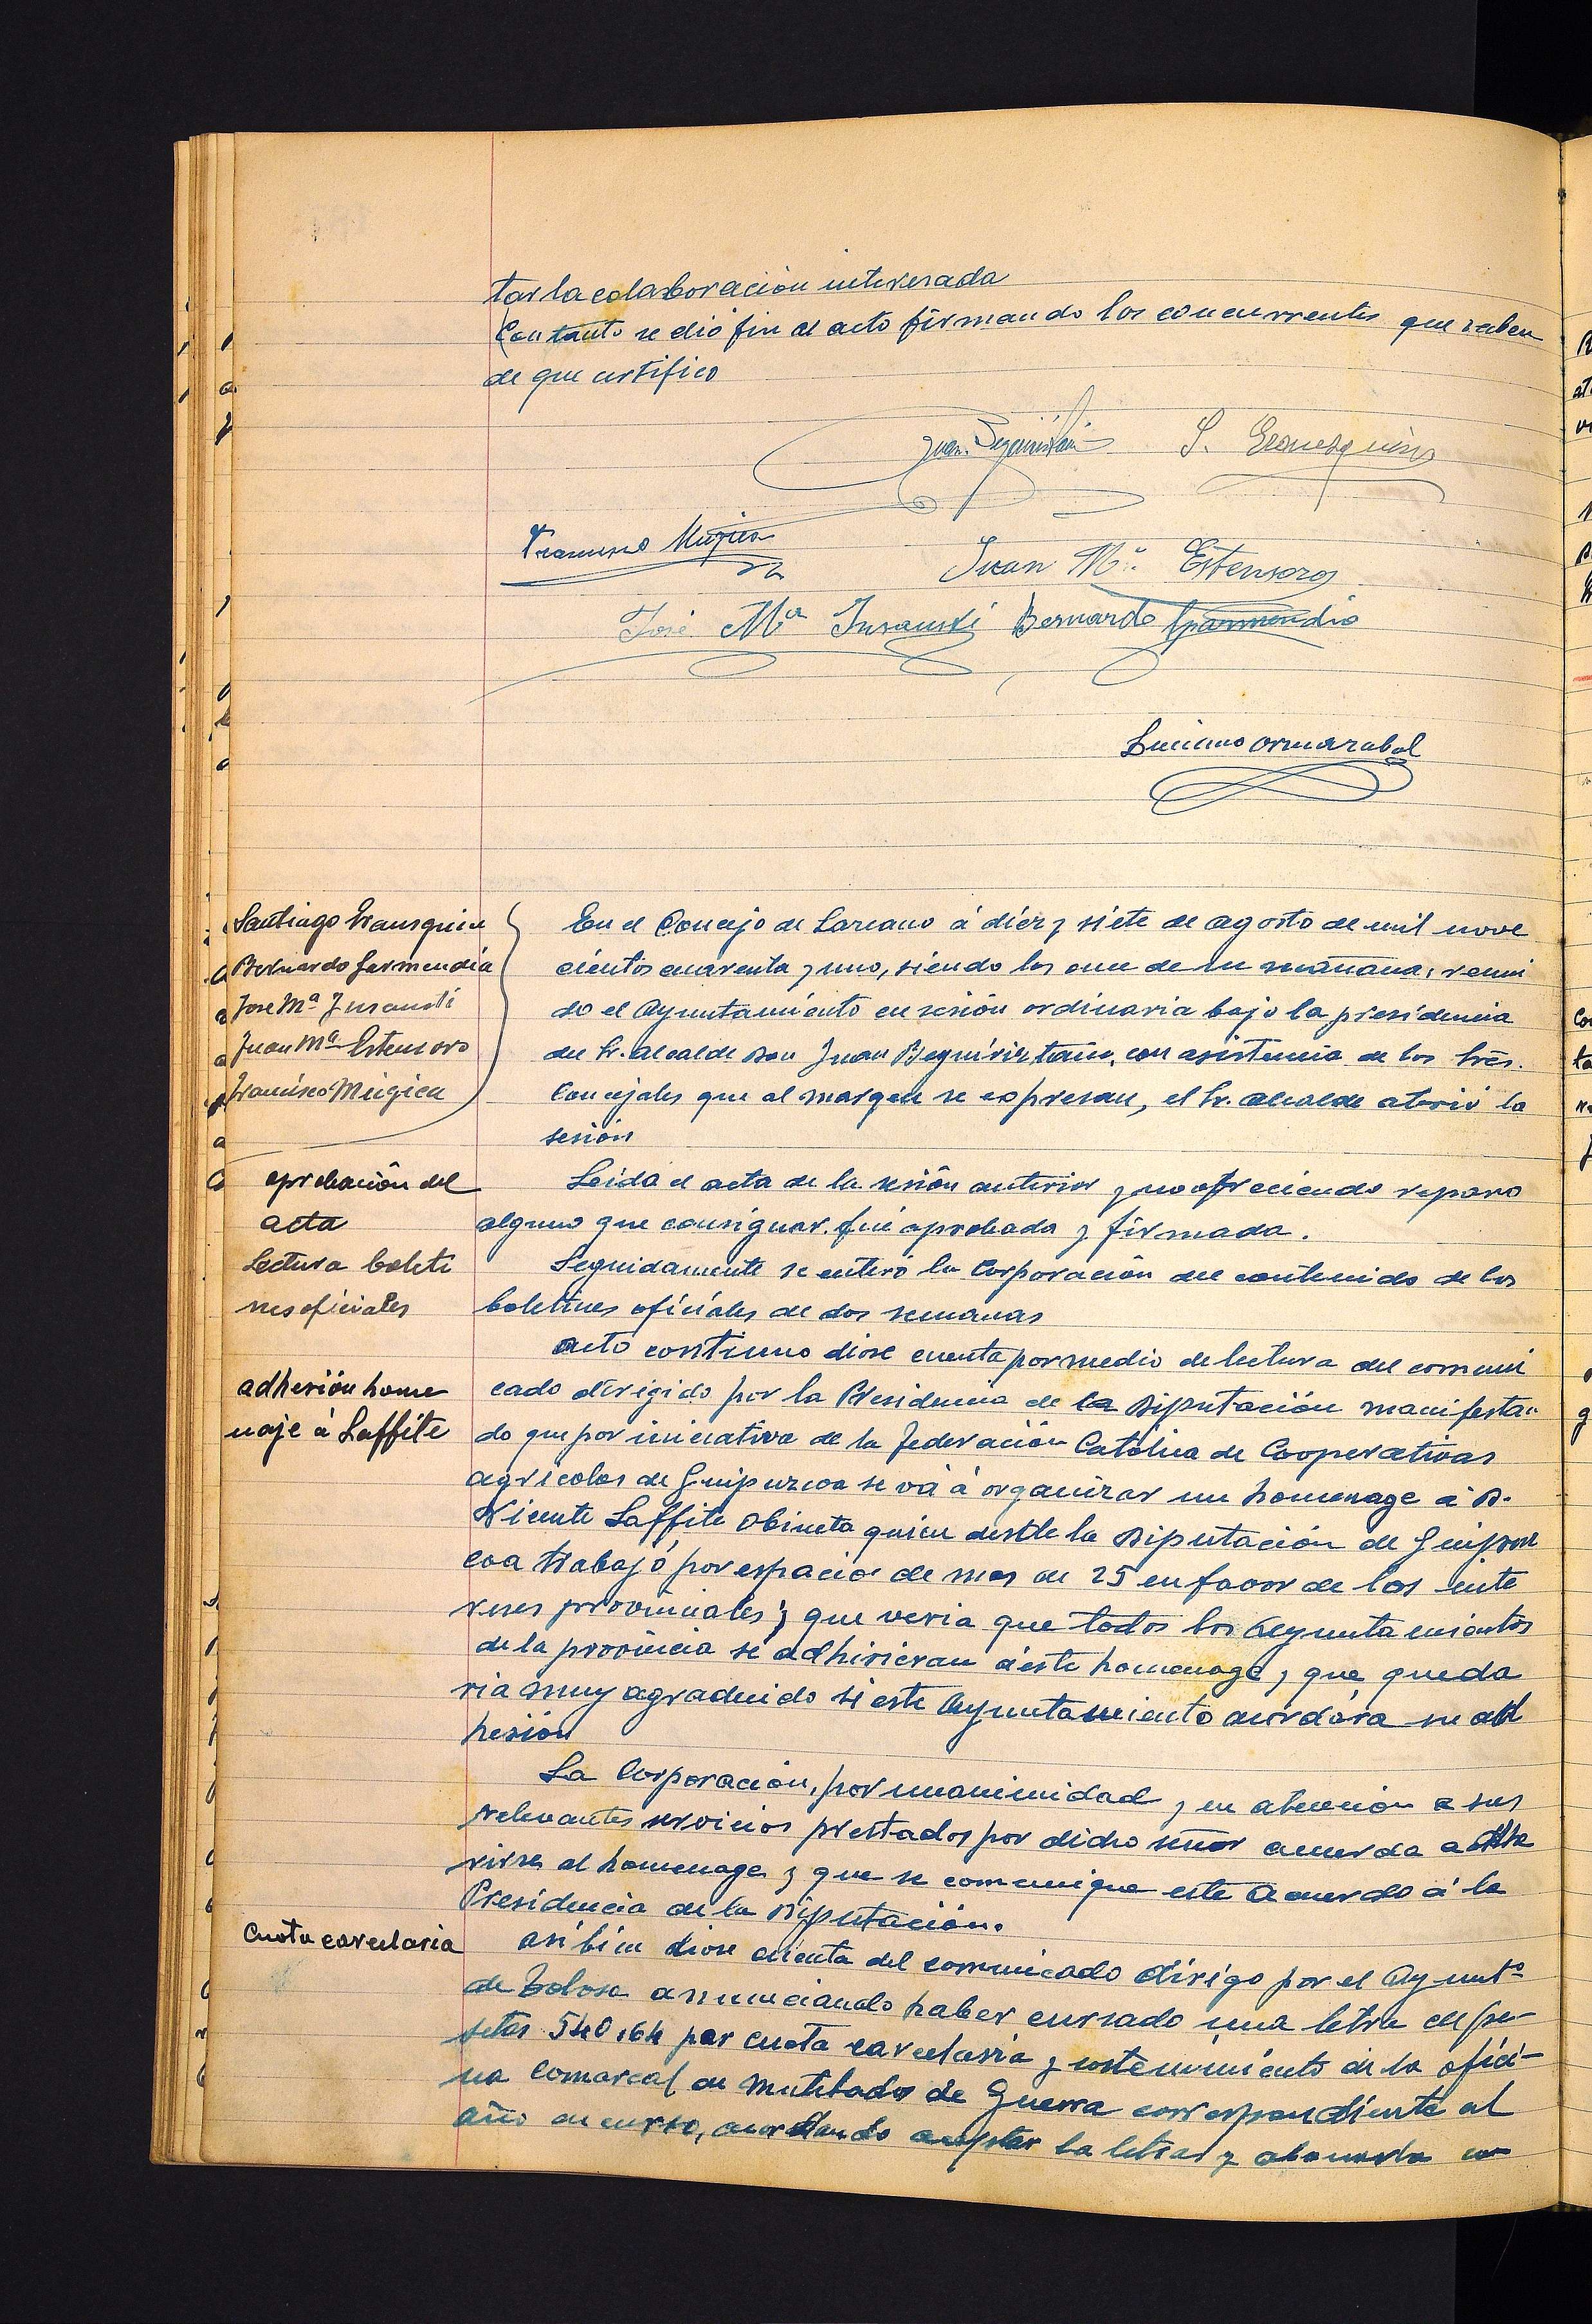 tar la colaboración interesada
Con tanto se dió fin al acto firmando los concurrentes que saben
de que certifico
Juan Beguiristain S. Irausquin
Francisco Mugica
Juan Mª Estensoro
José Mª Insausti Bernardo Garmendia
Luciano Ormazabal
Santiago Irausquin
Bernardo Garmendia
Jose Mª Insausti
Juan Mª Estensoro
Francisco Múgica
En el Concejo de Lazcano á diez y siete de agosto de mil nove
cientos cuarenta y uno, siendo las once de su mañana, reuni
do el Ayuntamiento en sesión ordinaria bajo la presidencia
del Sr. Alcalde Don Juan Beguiristain, con asistencia de los Sres.
Concejales que al margen se expresan, el Sr. alcalde abrió la
sesión
aprobación del
acta
Leida el acta de la sesión anterior y no ofreciendo reparo
alguno que consignar. fué aprobada y firmada.
Lectura boleti
nes oficiales
Seguidamente se enteró la Corporación del contenido de los
boletines oficiales de dos semanas
adhesión home
naje á Laffite
acto continuo diose cuenta por medio de lectura del comuni
cado dirigido por la Presidencia de la Diputación manifestan
do que por iniciativa de la Federación Católica de Cooperativas
agricolas de Guipuzcoa se vá á organizar un homenage á D.
Vicente Laffite Obineta quien desde la Diputación de Guipuz
coa trabajó por espacio de mas de 25 en favor de los inte
reses provinciales; y que veria que todos los Ayuntamientos
de la provincia se adhirieran á este homenage, y que queda
ria muy agradecido si este Ayuntamiento acordára su ad
hesión
La Corporación, por unanimidad y en atencion a sus
relevantes servicios prestados por dicho señor acuerda adhe
rirse al homenage y que se comunique este acuerdo á la
Presidencia de la Diputación.
Cuota carcelaria
asi bien diose cuenta del comunicado dirigo por el Ayuntº
de Tolosa anunciando haber cursado una letra de pe-
setas 540,64 por cuota carcelaria y sostenimiento de la ofici-
na comarcal de Mutilados de Guerra correspondiente al
año en curso, acordando aceptar la letra y abonarla con